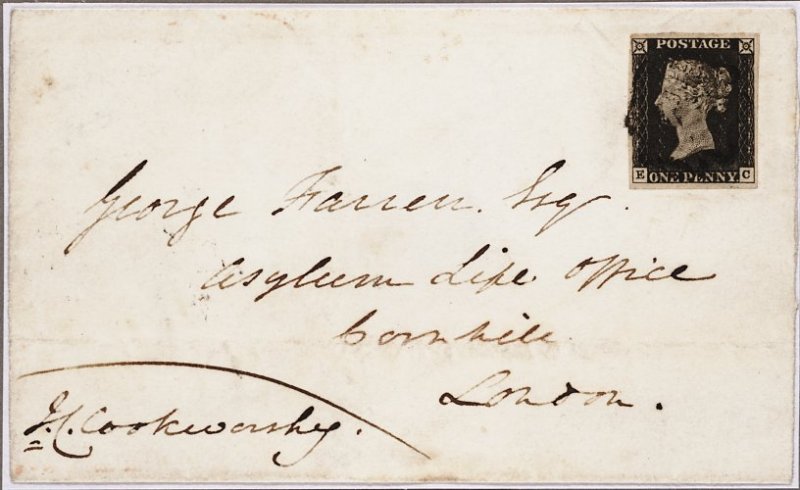 POSTAGE
E ONE PENNY. C
George Farren Esqr.
Asylum Life Office
Cornhill
London.
J.C. Cookworthy.